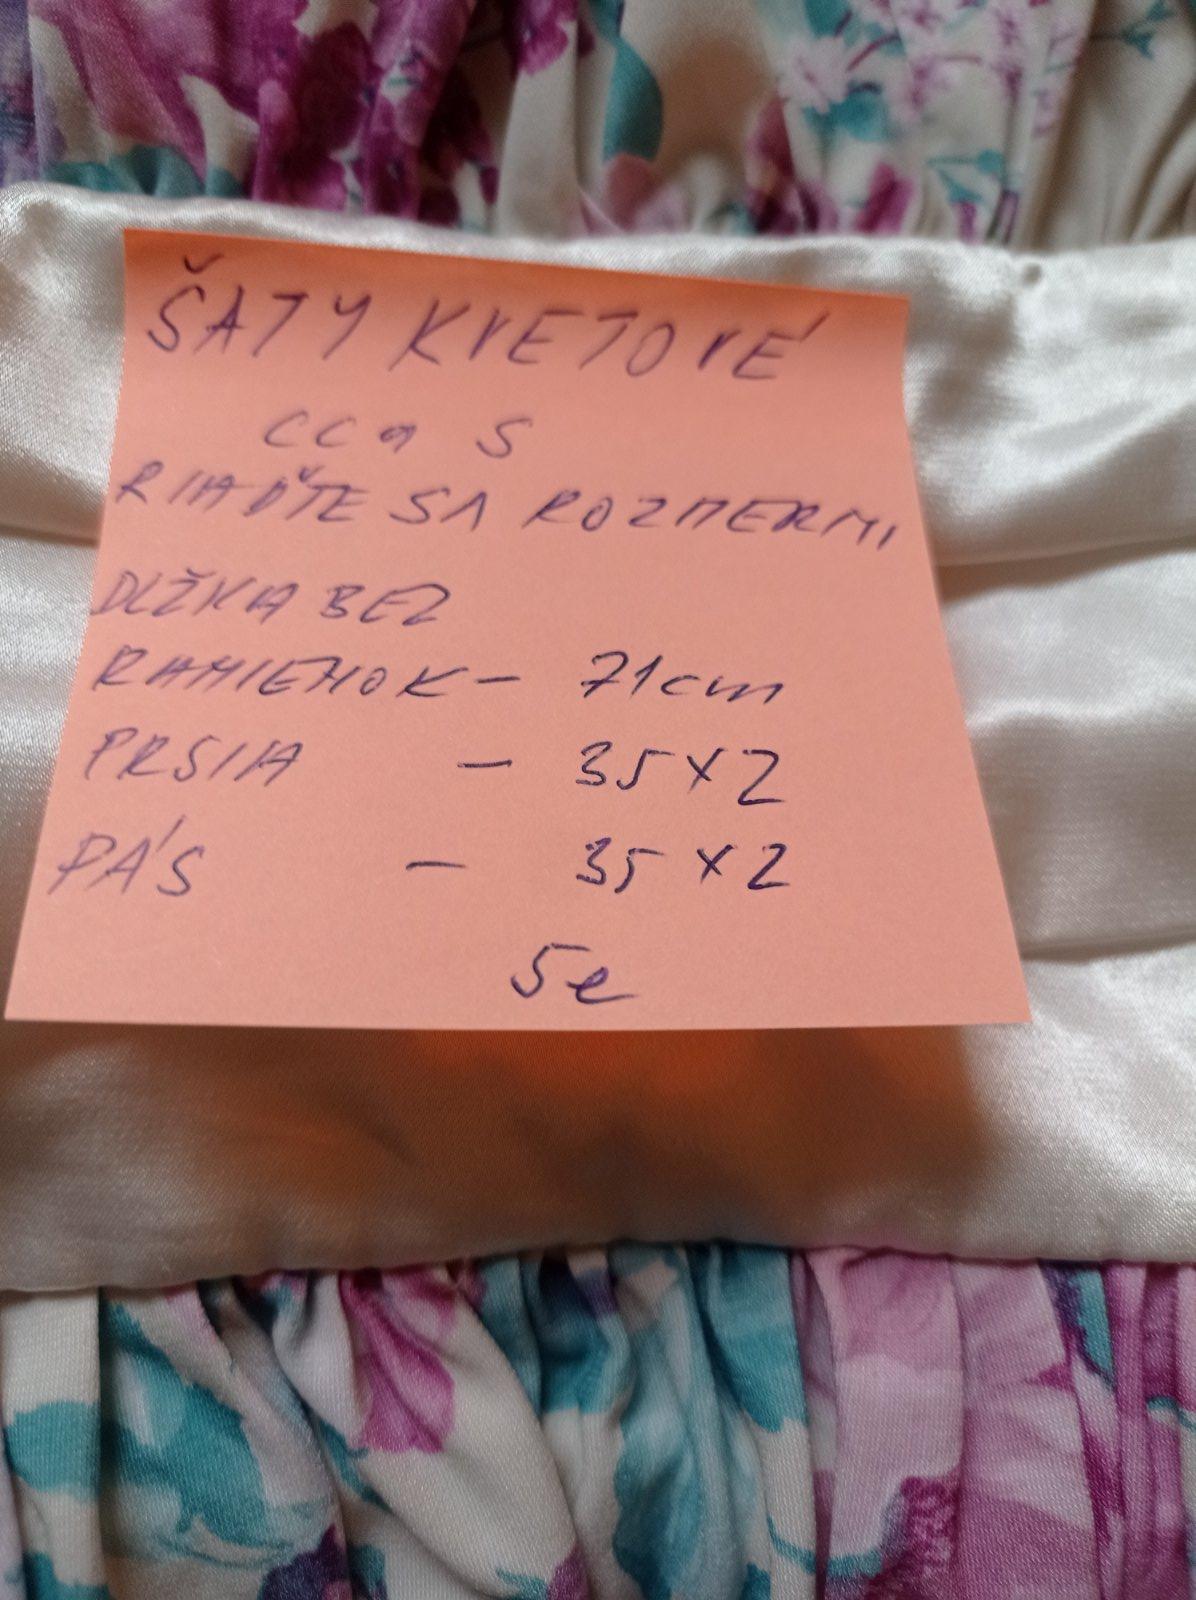 ŠATY KVETOVÉ
CCA S
RIAĎTE SA ROZMERMI
DLŽKA BEZ
RAMIENOK - 71cm
PRSIA - 35x2
PÁS - 35x2
5e